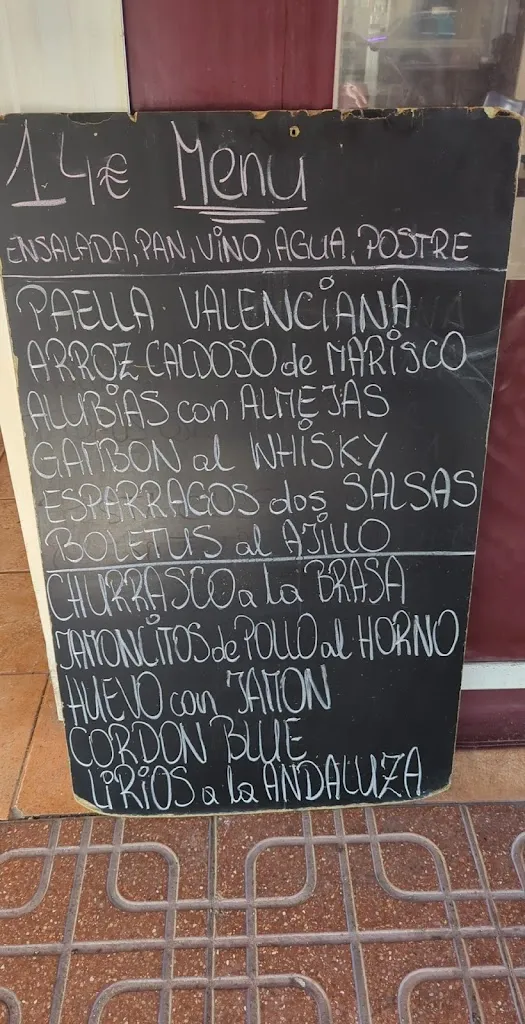 14€ Menu
ENSALADA, PAN, ViNO, AGUA, POSTRE
PAELLA VALENCiANA
ARROZ CALDOSO de MARiSCO
ALUBiAS con ALMEJAS
GAMBON al WHiSKY
ESPARRAGOS dos SALSAS
BOLETUS al AJiLLO
CHURRASCO a la BRASA
JAMONCiTOS de POLLO al HORNO
HUEVO con JAMON
CORDON BLUE
LiRiOS a la ANDALUZA